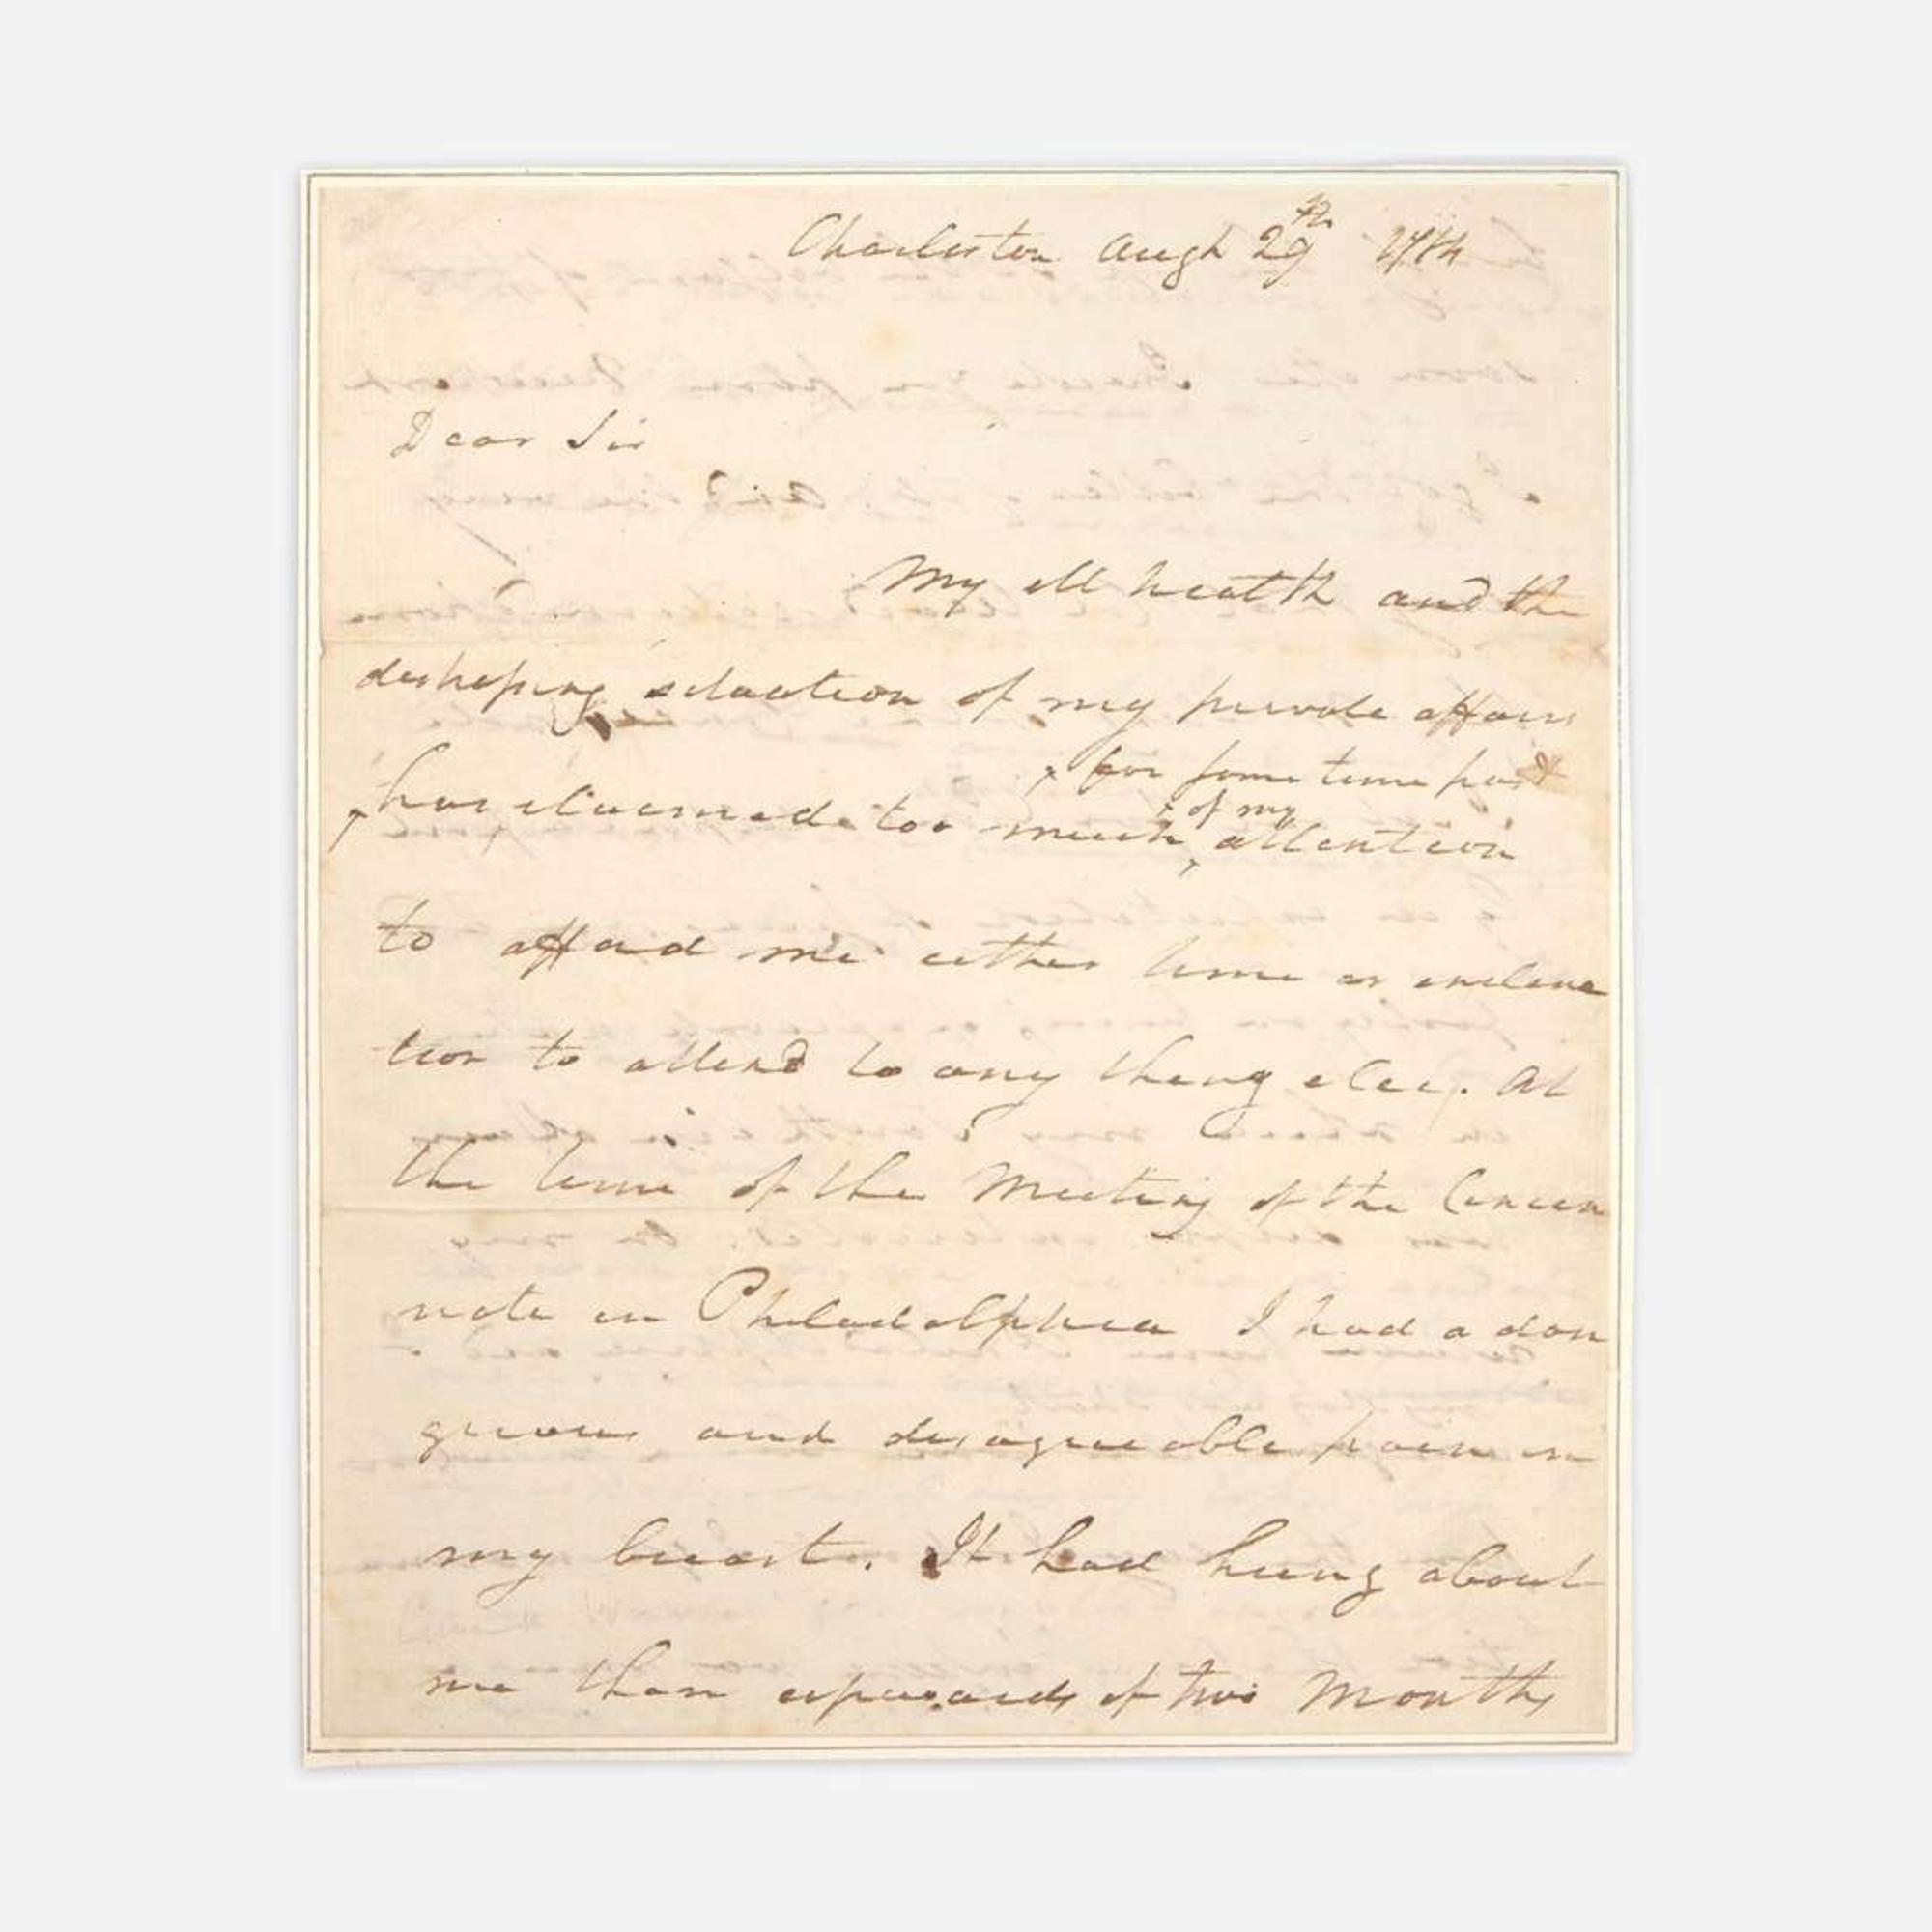 Charleston Augt 29th 1784
Dear Sir
My ill health and the
situation of my private affairs
for some time past
of my
has claimed too much attention
to afford me either time or inclina
tion to attend to any thing else. At
the time of the Meeting of the Cincin
nate in Philadalphia I had a dan
gerous and disagreeable pain in
my breast. It had hung about
me then upwards of two Months